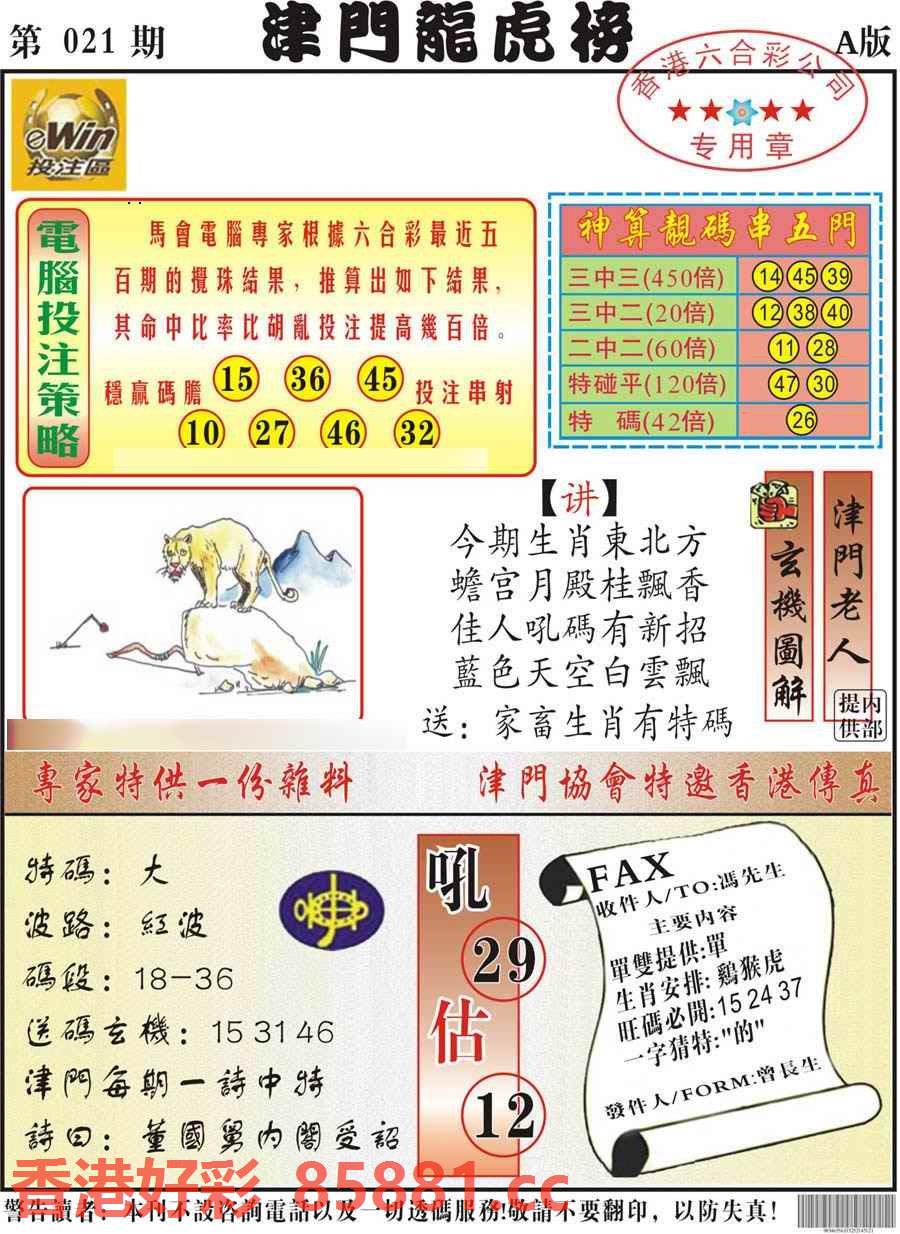 第 021 期
津門龍虎榜
A版
香港六合彩公司
专用章
eWin
投注區
電腦投注策略
馬會電腦專家根據六合彩最近五
百期的攪珠結果，推算出如下結果，
其命中比率比胡亂投注提高幾百倍。
穩贏碼膽 15 36 45 投注串射
10 27 46 32
神算靚碼串五門
三中三(450倍) 14 45 39
三中二(20倍) 12 38 40
二中二(60倍) 11 28
特碰平(120倍) 47 30
特 碼(42倍) 26
【讲】
今期生肖東北方
蟾宫月殿桂飄香
佳人吼碼有新招
藍色天空白雲飄
送：家畜生肖有特碼
玄機圖解
津門老人
提供
内部
專家特供一份雜料
津門協會特邀香港傳真
特碼：大
波路：紅波
碼段：18-36
送碼玄機：15 31 46
津門每期一詩中特
詩曰：董國舅内閣受詔
吼
29
估
12
FAX
收件人/TO:馮先生
主要内容
單雙提供:單
生肖安排:鷄猴虎
旺碼必開:15 24 37
一字猜特:"的"
發件人/FORM:曾長生
香港好彩 85881.cc
警告讀者：本刊不設咨詢電話以及一切透碼服務!敬請不要翻印，以防失真!